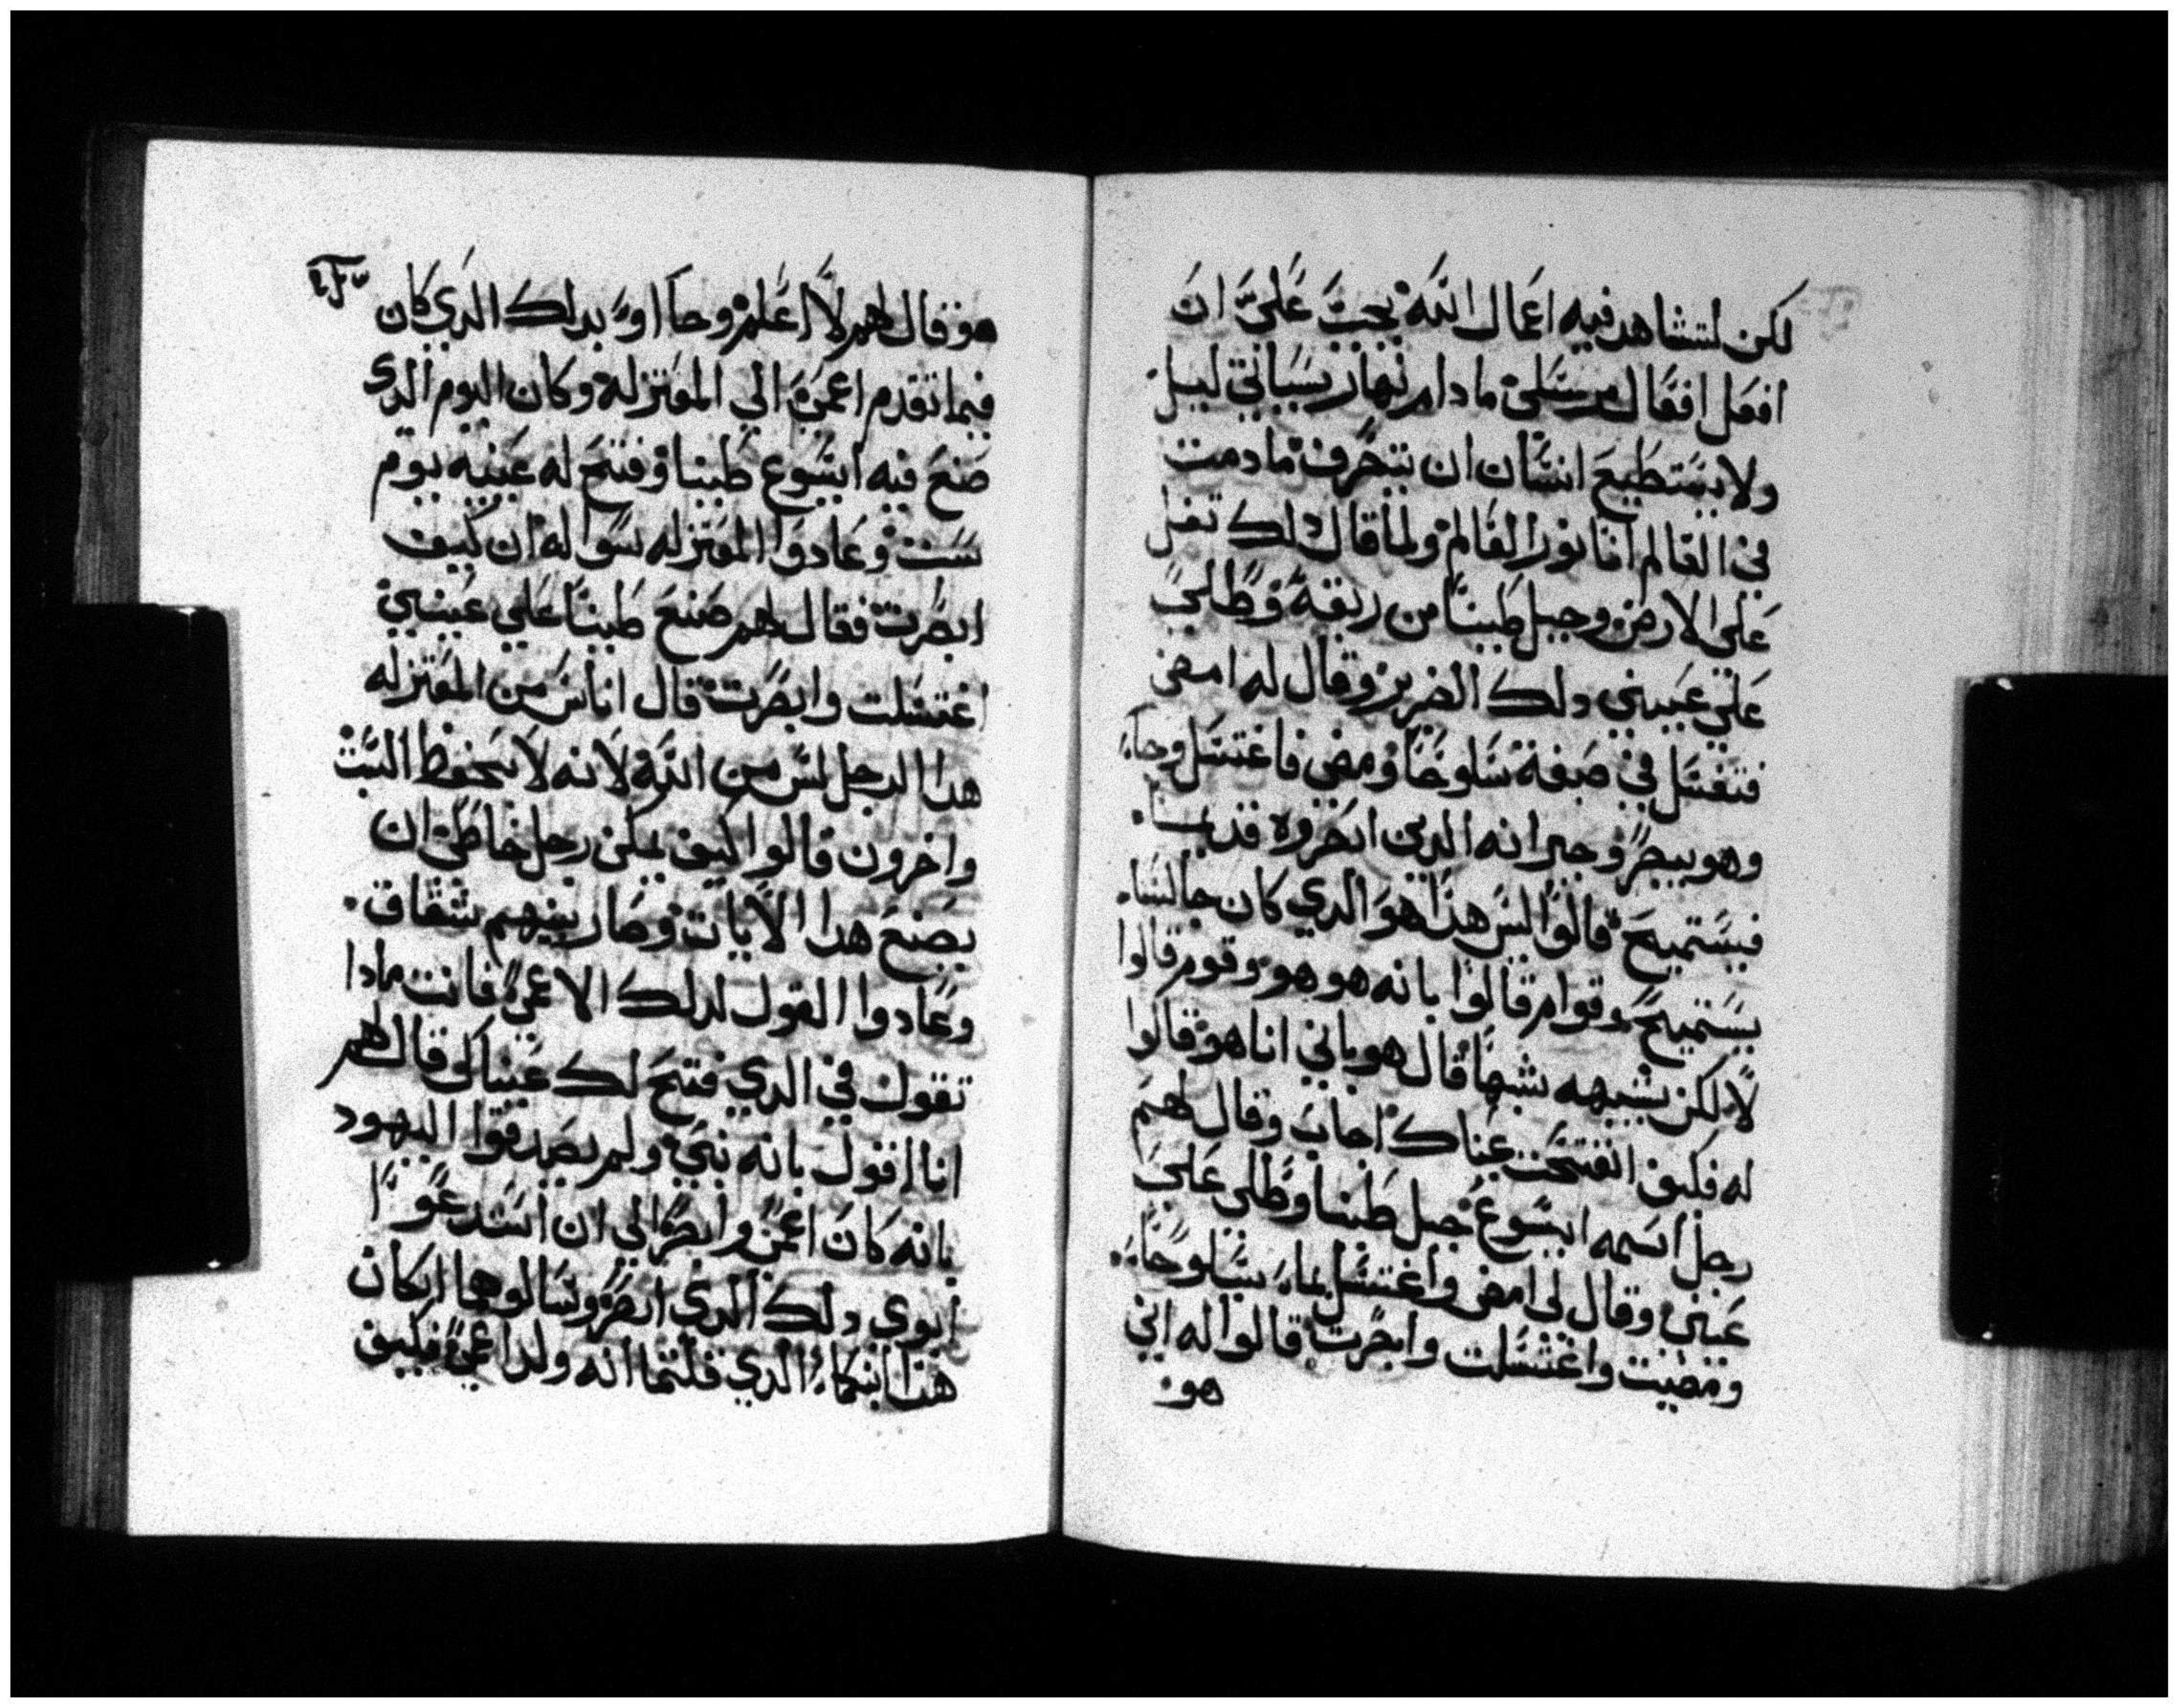 لكن لتشاهد فيه اعمال الله يجب علي ان
افعل افعال مرسلي ما دام نهار بسياتي ليل
ولا يستطيع انسان ان يتحرف ما دمت
في العالم انا نور العالم ولما قال دلك تفل
علي الارض وجبل طينا من ريقه وطلي
علي عيني دلك الضرير وقال له امضي
فتغسل في صبغة سلوحا ومضي فاغتسل وجاء
وهو يبصر وجيرانه الدين ابصروه قديما
فيستميح قالوا اليس هذا هو الدي كان جالسا
يستميح وقوام قالوا بانه هو هو وقوم قالوا
لا لكن يشبهه شبها قال هو باني انا هو قالوا
له فكيف انفتحت عيناك اجاب وقال لهم
رجل اسمه ايسوع جبل طينا وطلي علي
عيني وقال لي امضي واغتسل بماء سيلوحاء
ومضيت واغتسلت وابصرت قالوا له اني
هو
هو قال لهم لا اعلم وجا اوا بدلك الدي كان
فيما تقدم اعمي الي المعتزله وكان اليوم الدي
صنع فيه ايسوع طينا وفتح له عينيه يوم
سبت وعادوا المعتزله سواله ان كيف
ابصرت فقال لهم صنع طينا علي عيني
اغتسلت وابصرت قال اناس من المعتزله
هدا الرجل ليس من الله لانه لا يحفظ السبت
واخرون قالوا كيف يمكن رجل خاطي ان
يصنع هدا الايات وصار بينهم شقاق
وعادوا القول لدلك الاعمي فانت مادا
تقول في الدي فتح لك عيناك قال لهم
انا اقول بانه نبي ولم يصدقوا اليهود
بانه كان اعمي وابصر الي ان استدعوا
ابوي دلك الدي ابصر وسالوهما ان كان
هذا ابنكما الدي قلتما انه ولد اعمي فكيف